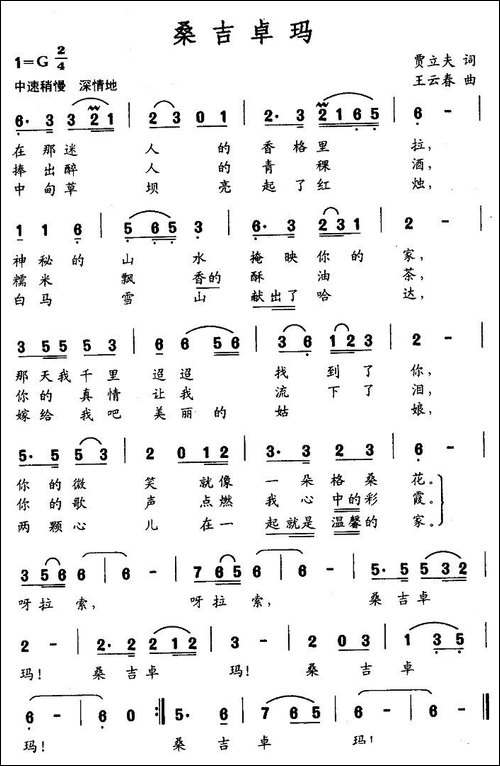 桑吉卓玛
1=G 2/4
贾立夫 词
中速稍慢 深情地
王云春 曲
6· 3 3 2 1 | 2 3 0 1 | 2· 3 2 1 6 5 | 6 - |
在那迷 人 的 香格里 拉,
捧出醉 人 的 青 稞 酒,
中甸草 坝 亮 起了红 烛,
1 1 6 | 5 6 5 3 | 6· 3 2 3 1 | 2 - |
神秘的 山 水 掩映你的 家,
糯米 飘 香的 酥 油 茶,
白马 雪 山 献出了哈 达,
3 5 5 5 3 | 6 6 5 6 | 3 6 1 2 3 | 2 - |
那天我千里 迢迢 找 到 了 你,
你的真情让我 流 下 了 泪,
嫁给我吧美丽的 姑 娘,
5· 5 5 3 | 2 0 1 2 | 3· 3 2 3 | 6 - |
你的微 笑 就像 一朵格桑 花。
你的歌 声 点燃 我心中的彩 霞。
两颗心 儿在一 起就是温馨的 家。
3 5 6 6 | 6 - | 7 6 5 6 | 6 - | 5· 5 5 3 2 |
呀拉索, 呀拉索, 桑吉卓
2 - | 2· 2 2 1 2 | 3 - | 2 0 3 | 1 3 5 |
玛! 桑吉卓 玛! 桑 吉 卓
6 - | 6 0 :| 5· 6 | 7 6 6 | 6 - | 6 - ‖
玛! 桑吉卓 玛!